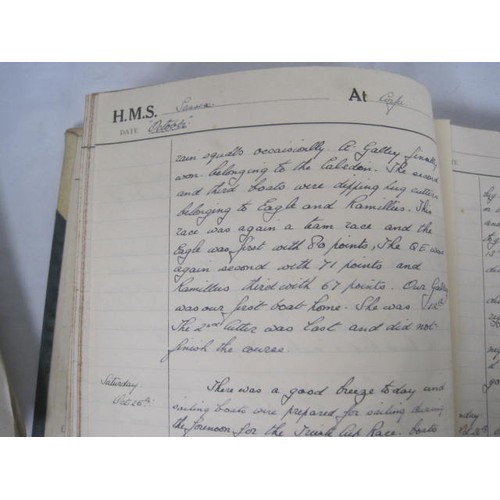 H.M.S. At
DATE October
rain squalls occasionally. A Galley finally
won belonging to the Caledon. The second
and third boats were dipping lug cutters
belonging to Eagle and Ramillies. This
race was again a team race and the
Eagle was first with 80 points, The QE was
again second with 71 points and
Ramillies third with 67 points. Our Galley
was our first boat home. She was 12th
The 2nd Cutter was last and did not
finish the course.
Saturday
Oct 25th
There was a good breeze today and
sailing boats were prepared for sailing during
the forenoon for the Cup Race. boats